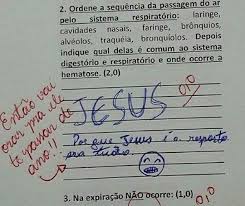 2. Ordene a sequência da passagem do ar
pelo sistema respiratório: laringe,
cavidades nasais, faringe, brônquios,
alvéolos, traquéia, bronquíolos. Depois
indique qual delas é comum ao sistema
digestório e respiratório e onde ocorre a
hematose. (2,0)
0,0
JESUS
Por que Jesus é a resposta
pra tudo.
Então vai
orar pra ele
te passar de
ano!!
3. Na expiração NÃO ocorre: (1,0)
0,0